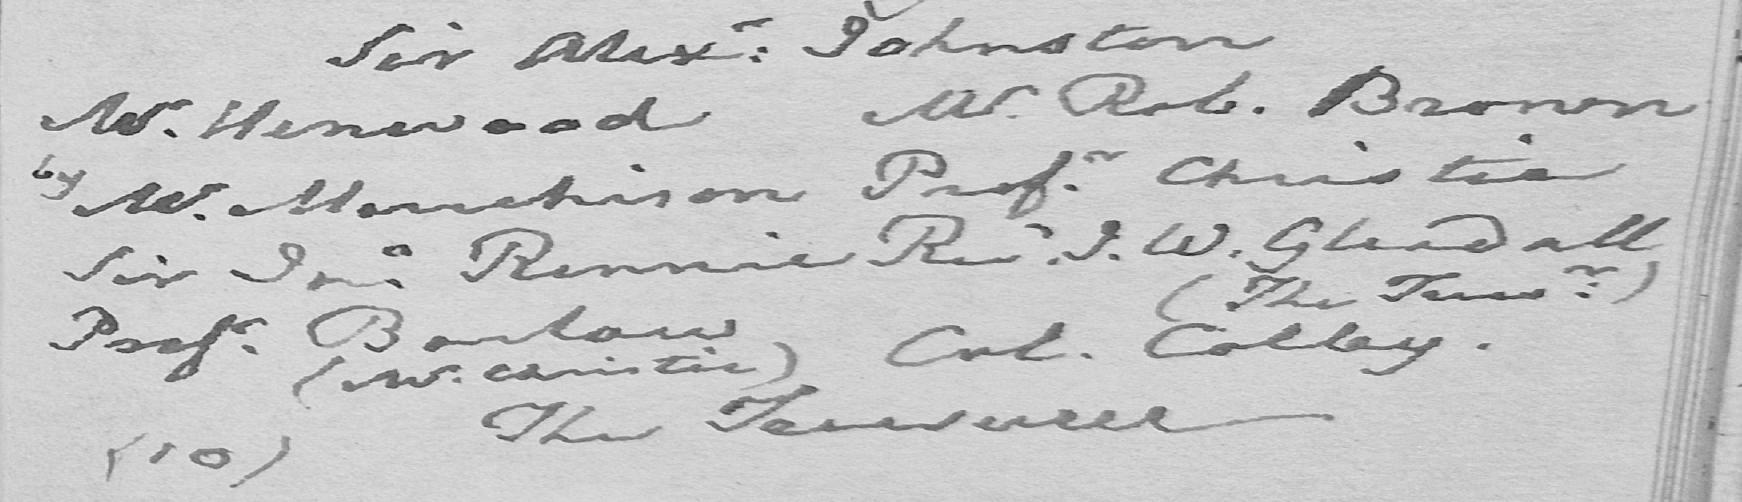 Sir Alexr: Johnston
Mr. Henwood Mr. Rob. Brown
by Mr. Murchison Profr. Christie
Sir Jno: Rennie Revd. J. W. Gleadall
(The Treasr:)
Profr. Barlow Col. Colby.
(Mr. Christie)
The Treasurer
(10)